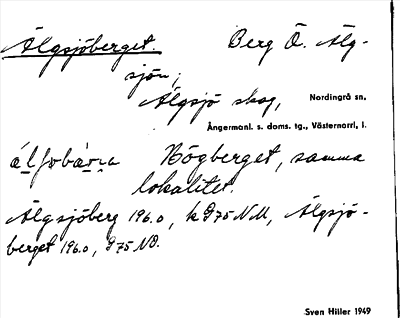 Älgsjöberget. Berg Ö. Älg-
sjön;
Älgsjö skog, Nordingrå sn,
Ångermanl. s. doms. tg., Västernorrl. l.
Högberget, samma
lokalitet.
Älgsjöberg 196.0, k 975 NM, Älgsjö-
berget 196.0, 975 NO.
Sven Hiller 1949